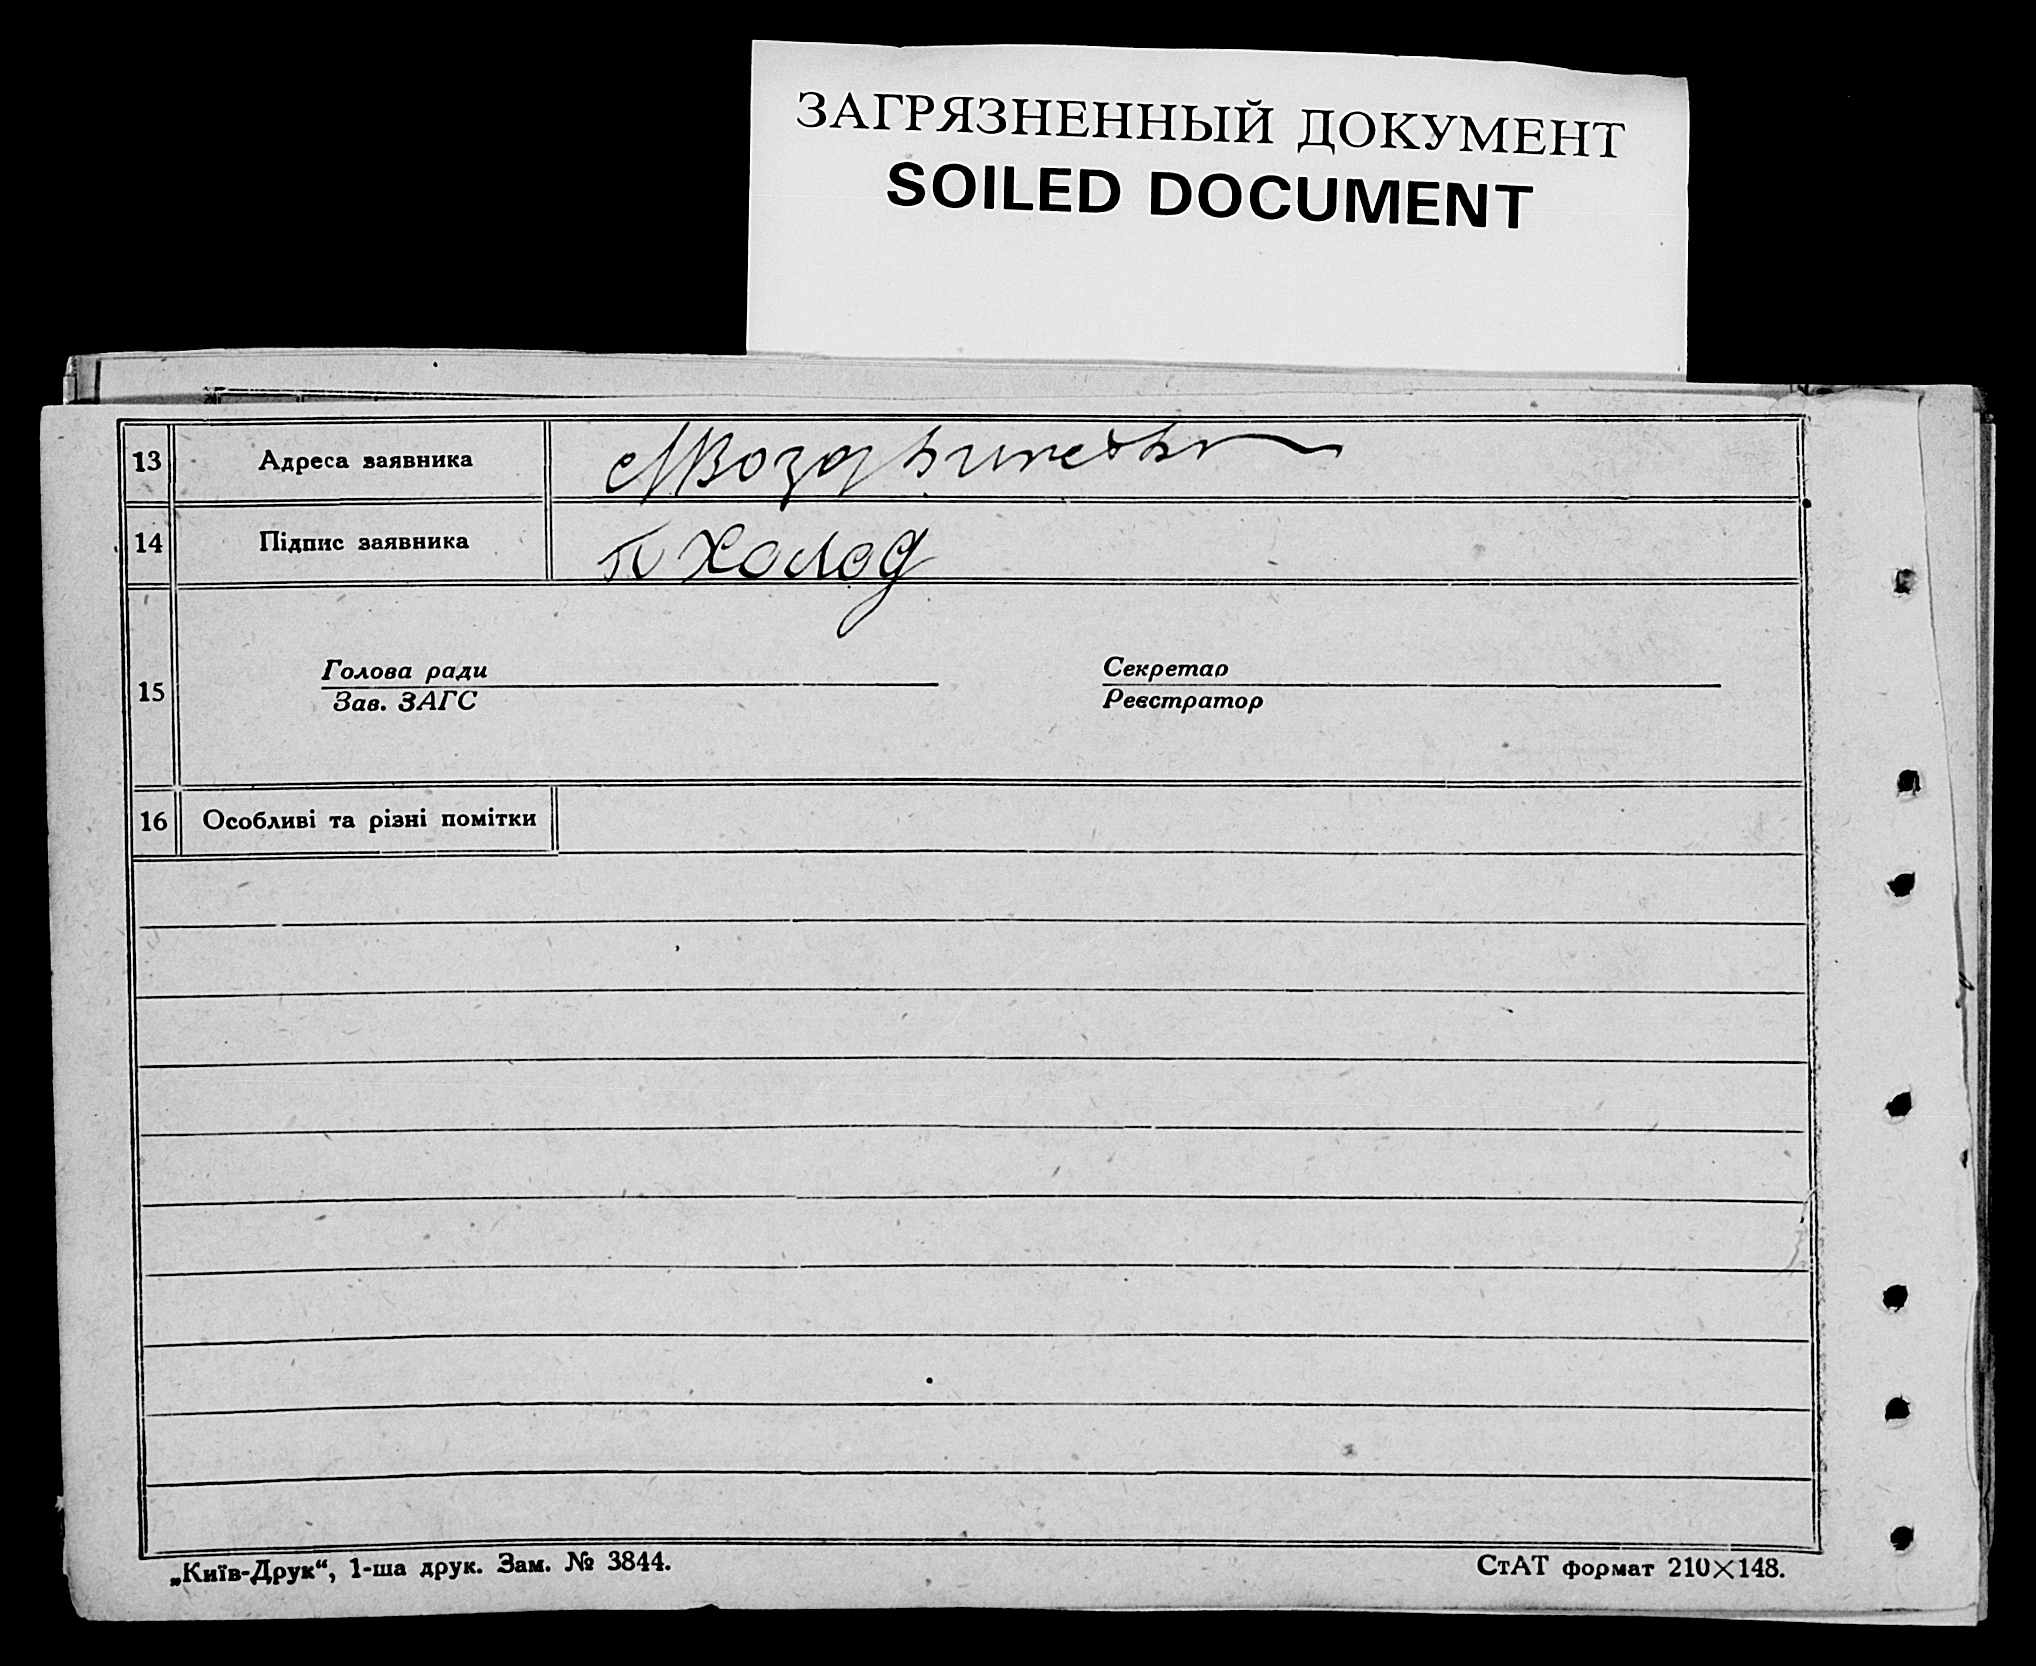 ЗАГРЯЗНЕННЫЙ ДОКУМЕНТ
SOILED DOCUMENT
13 Адреса заявника
14 Підпис заявника П Холод
15 Голова ради Секретар
Зав. ЗАГС Реєстратор
16 Особливі та різні помітки
„Київ-Друк“, 1-ша друк. Зам. № 3844. СтАТ формат 210×148.